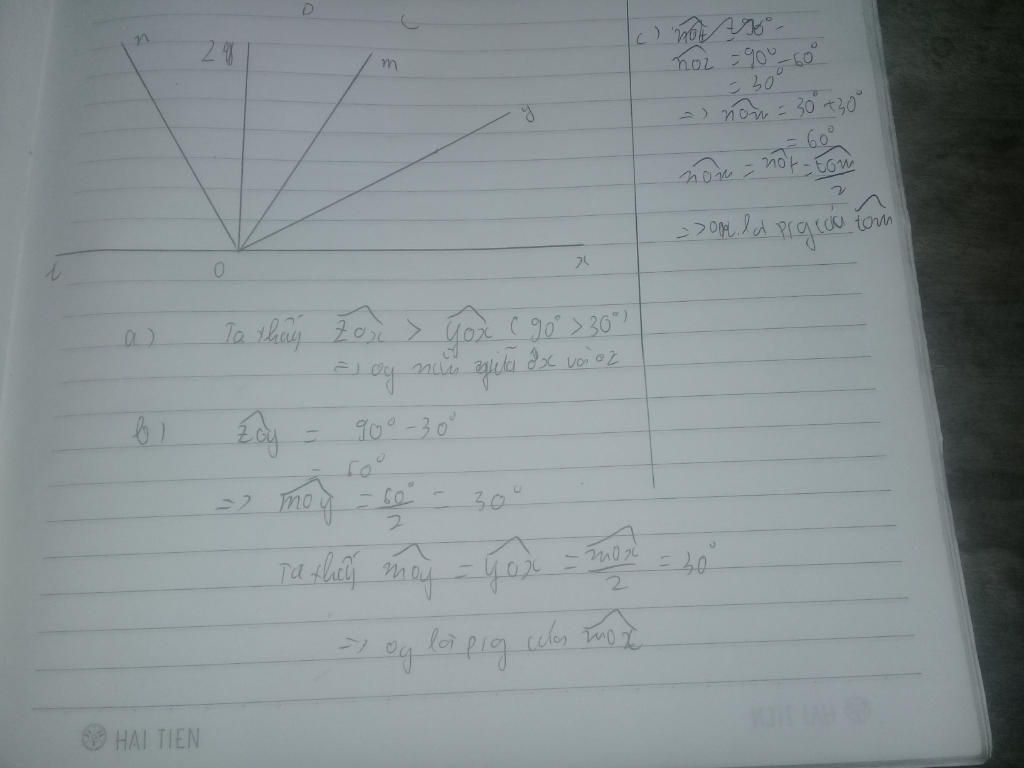 n
z
m
y
t
O
x
a) Ta thấy zôx > yôx (90° > 30°)
=> oy nằm giữa ox và oz
b) zôy = 90° - 30°
= 60°
=> môy = 60°/2 = 30°
Ta thấy môy = yôx = môx/2 = 30°
=> oy là pg của môx
c)
nôz = 90° - 60°
= 30°
=> nôm = 30° + 30°
= 60°
nôm = nôt = tôm/2
=> on là pg của tôm
HAI TIEN